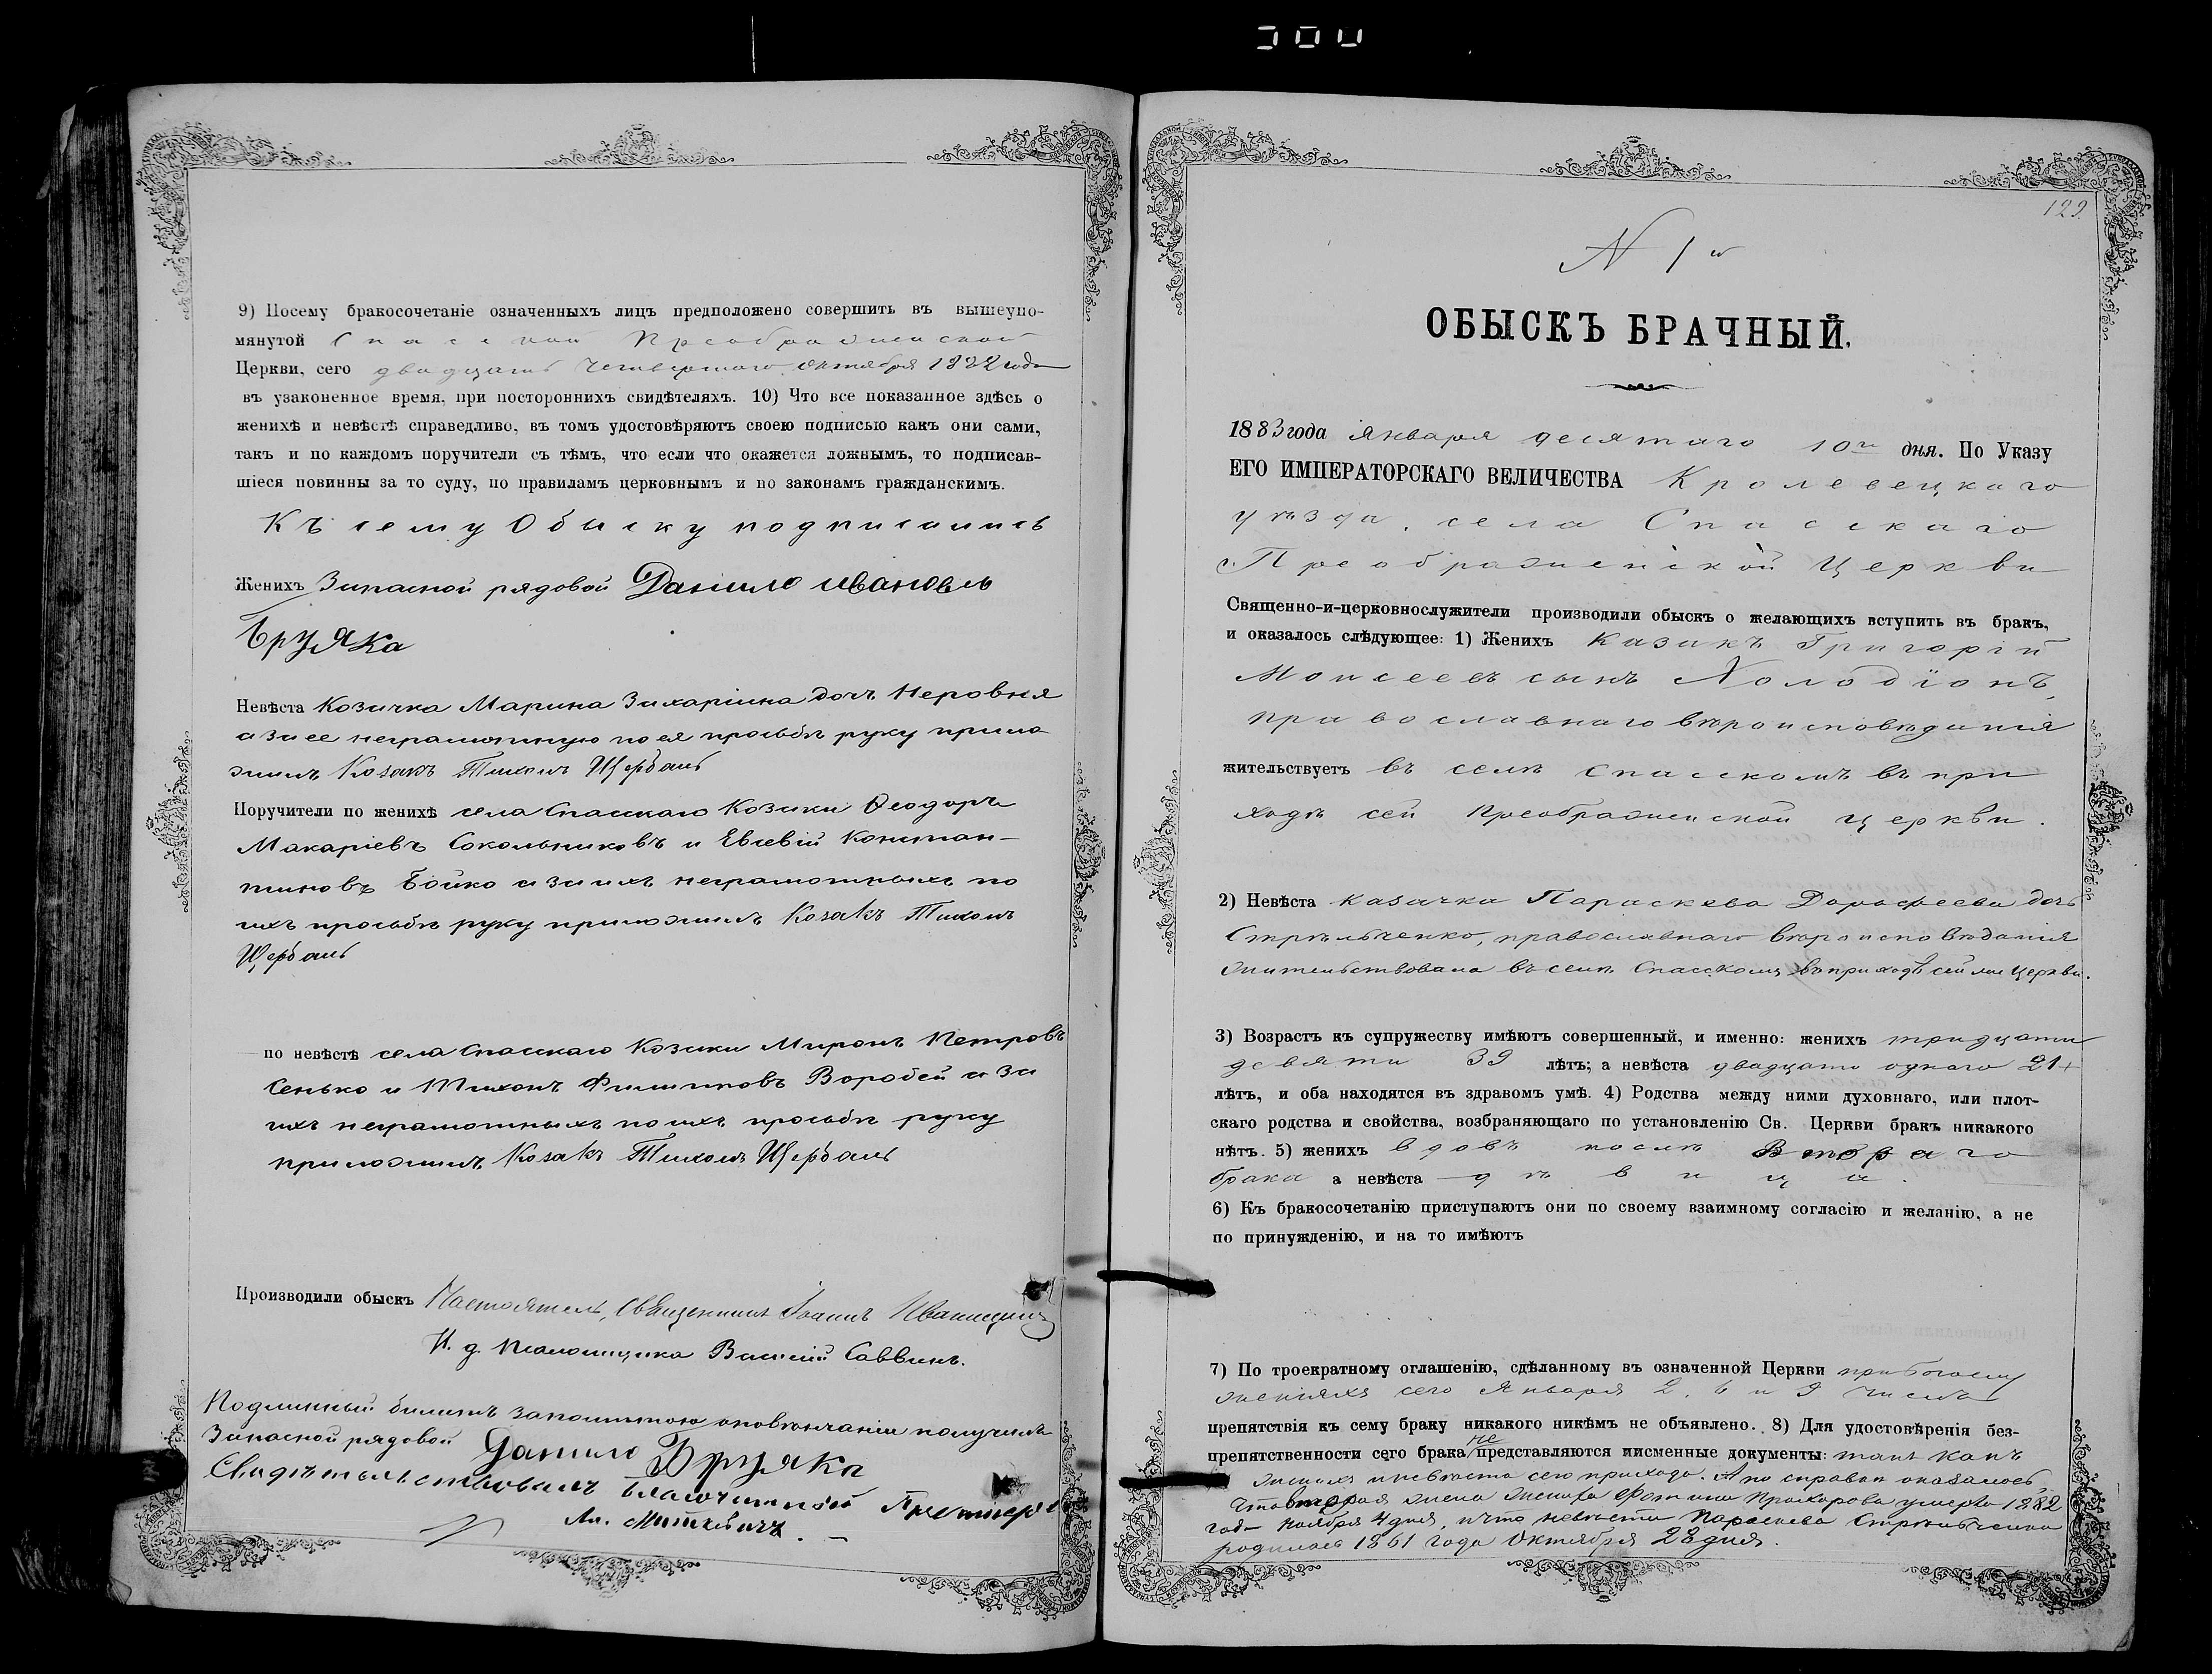 9) Посему бракосочетаніе означенныхъ лицъ предположено совершить въ вышеупо-
мянутой Спасской Преображенской
Церкви, сего двадцать четвертаго октября 1882 года
въ узаконенное время, при постороннихъ свидѣтеляхъ. 10) Что все показанное здѣсь о
женихѣ и невѣстѣ справедливо, въ томъ удостовѣряютъ своею подписью какъ они сами,
такъ и по каждомъ поручители съ тѣмъ, что если что окажется ложнымъ, то подписав-
шіеся повинны за то суду, по правиламъ церковнымъ и по законамъ гражданскимъ.
Къ сему Обыску подписались
Женихъ Запасной рядовой Данило Ивановъ
Бруяка
Невѣста Козачка Марина Захаріина дочь Неровня
а за ее неграмотную по ея прозьбѣ руку прило
жилъ Козакъ Тихонъ Щербань
Поручители по женихѣ села Спасскаго Козаки Ѳеодоръ
Макаріевъ Сокольниковъ и Евсевій Констан-
тиновъ Бойко а за ихъ неграмотныхъ по
ихъ прозьбѣ руку приложилъ Козакъ Тихонъ
Щербань
по невѣстѣ села Спасскаго Козаки Миронъ Петровъ
Сенько и Тихонъ Филиповъ Воробей а за
ихъ неграмотныхъ по ихъ прозьбѣ руку
приложилъ Козакъ Тихонъ Щербань
Производили обыскъ Настоятель, Священникъ Іоаннъ
И. д. Псаломщика Василій Саввинъ.
Подлинный билетъ запискою о повѣнчаніи получилъ
Запасной рядовой Данило Бруяка
Свидѣтельствовалъ Благочинный Протоіерей
Ал. Миткевичъ.
129.
N 1й
ОБЫСКЪ БРАЧНЫЙ.
1883 года января десятаго 10го дня. По Указу
ЕГО ИМПЕРАТОРСКАГО ВЕЛИЧЕСТВА Кролевецкаго
уѣзда, села Спасскаго
Преображенской Церкви
Священно-и-церковнослужители производили обыскъ о желающихъ вступить въ бракъ,
и оказалось слѣдующее: 1) Женихъ Казакъ Григорій
Моисеевъ сынъ Холодіонъ,
православнаго вѣроисповѣданія
жительствуетъ въ селѣ Спасскомъ въ при
ходѣ сей Преображенской церкви.
2) Невѣста казачка Параскева Дорофеева дочь
Стрѣльченко, православнаго вѣроисповѣданія
жительствовала въ селѣ Спасскомъ въ приходѣ сей же церкви.
3) Возрастъ къ супружеству имѣютъ совершенный, и именно: женихъ тридцати
девяти 39 лѣтъ; а невѣста двадцати одного 21
лѣтъ, и оба находятся въ здравомъ умѣ. 4) Родства между ними духовнаго, или плот-
скаго родства и свойства, возбраняющаго по установленію Св. Церкви бракъ никакого
нѣтъ. 5) женихъ вдовъ послѣ Втораго
брака а невѣста дѣвица.
6) Къ бракосочетанію приступаютъ они по своему взаимному согласію и желанію, а не
по принужденію, и на то имѣютъ
7) По троекратному оглашенію, сдѣланному въ означенной Церкви при богослу
женіяхъ сего Января 2, 6 и 9 числъ
препятствія къ сему браку никакого никѣмъ не объявлено. 8) Для удостовѣренія без-
препятственности сего брака не представляются письменные документы: такъ какъ
женихъ и невѣста сего прихода. А по справкѣ оказалось,
что вторая жена жениха Фотина Прохорова умерла 1882
года Ноября 4 дня, и что невѣста Параскева Стрѣльченко
родилась 1861 года Октября 28 дня.